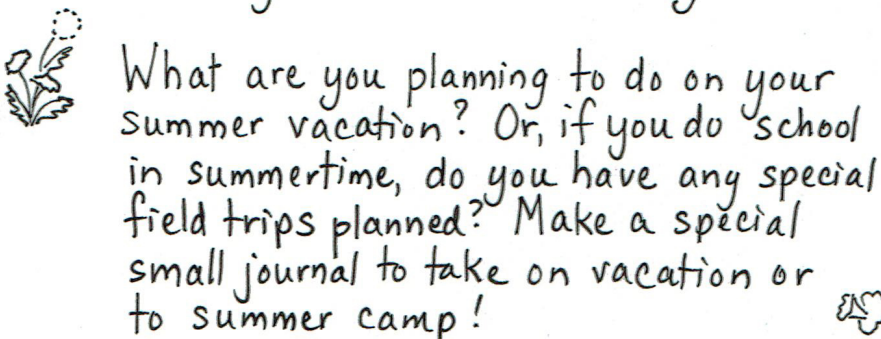 What are you planning to do on your
summer vacation? Or, if you do school
in summertime, do you have any special
field trips planned? Make a special
small journal to take on vacation or
to summer camp!